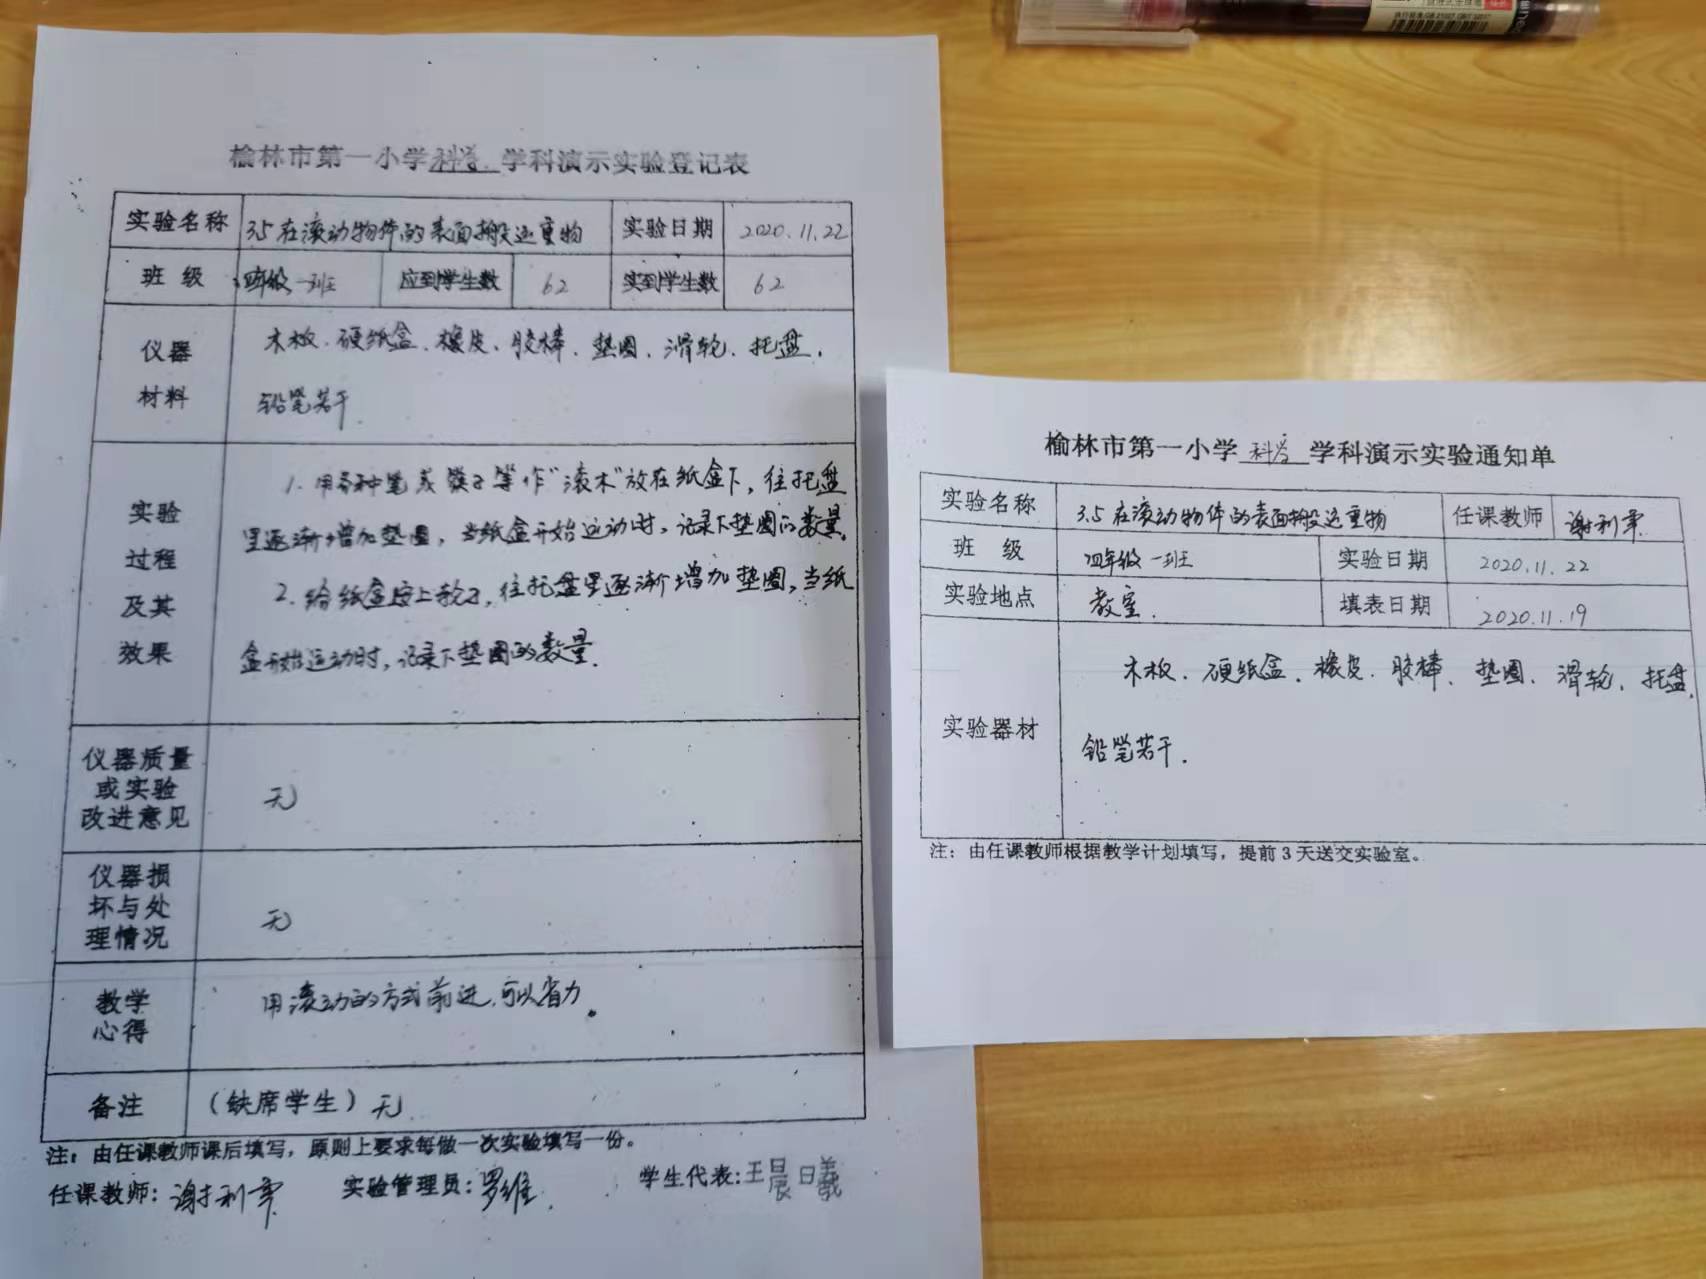 榆林市第一小学科学学科演示实验登记表
实验名称 3.5在滚动物体的表面搬运重物 实验日期 2020.11.22
班 级 四年级一班 应到学生数 62 实到学生数 62
仪器材料 木板、硬纸盒、橡皮、胶棒、垫圈、滑轮、托盘、
铅笔若干
实验过程及其效果 1. 用各种笔或筷子等作“滚木”放在纸盒下，往托盘
里逐渐增加垫圈，当纸盒开始运动时，记录下垫圈的数量。
2. 给纸盒安上轮子，往托盘里逐渐增加垫圈，当纸
盒开始运动时，记录下垫圈的数量.
仪器质量或实验改进意见 无
仪器损坏与处理情况 无
教学心得 用滚动的方式前进，可以省力。
备注 （缺席学生）无
注：由任课教师课后填写，原则上要求每做一次实验填写一份。
任课教师：谢利 实验管理员：罗维 学生代表：王晨曦
榆林市第一小学科学学科演示实验通知单
实验名称 3.5在滚动物体的表面搬运重物 任课教师 谢利
班 级 四年级一班 实验日期 2020.11.22
实验地点 教室. 填表日期 2020.11.19
实验器材 木板、硬纸盒、橡皮、胶棒、垫圈、滑轮、托盘、
铅笔若干.
注：由任课教师根据教学计划填写，提前3天送交实验室。